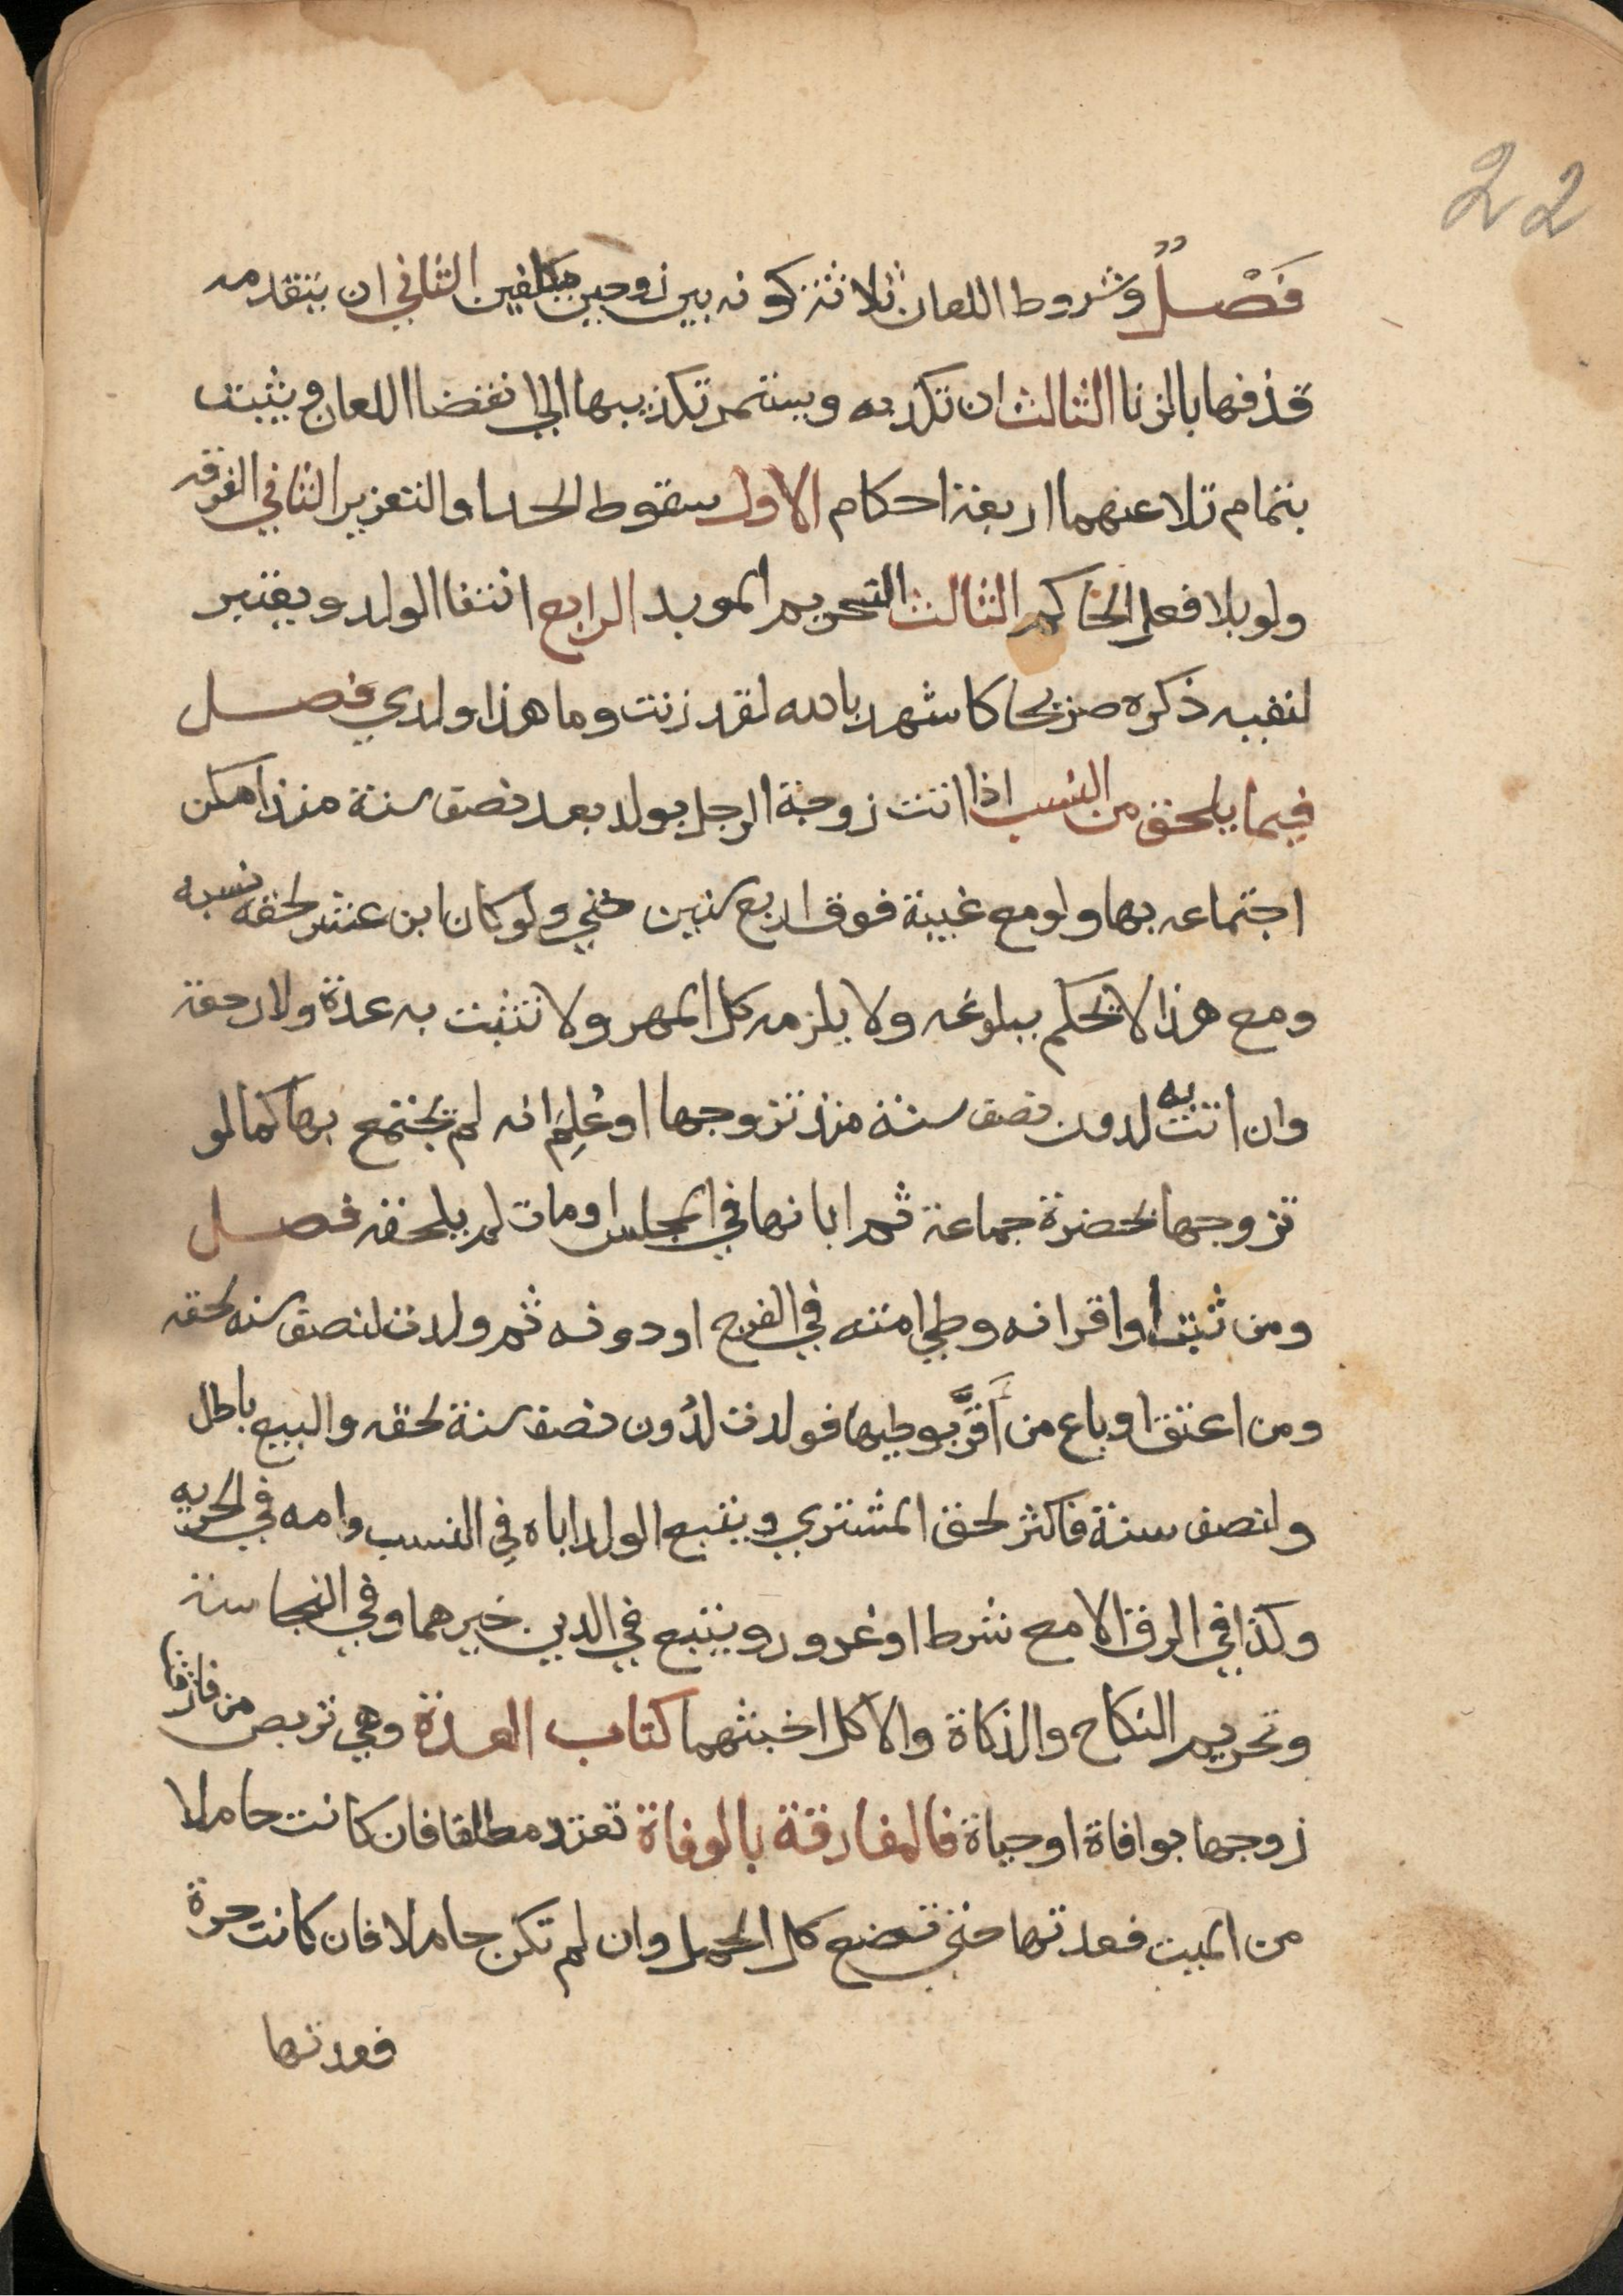 22
فَصْلٌ وشروط اللعان ثلاثة كونه بين زوجين مكلفين الثاني ان يتقدمه
قذفها بالزنا الثالث ان تكذبه ويستمر تكذيبها الى انقضا اللعان ويثبت
بتمام تلاعنهما اربعة احكام الاول سقوط الحد او التعزير الثاني الفرقه
ولو بلا فعل الحاكم الثالث التحريم الموبد الرابع انتفا الولد ويعتبر
لنفيه ذكره صريحا كاشهد بالله لقد زنت وما هذا ولدي فصل
فيما يلحق من النسب اذا اتت زوجة الرجل بولد بعد نصف سنة منذ امكن
اجتماعه بها ولو مع غيبة فوق اربع سنين حتي ولو كان ابن عشر لحقه نسبه
ومع هذا لا يحكم ببلوغه ولا يلزمه كل المهر ولا تثبت به عدة ولا رجعة
وان اتت به لدون نصف سنة منذ تزوجها او عُلِمَ انه لم يجتمع بها كما لو
تزوجها بحضرة جماعة ثم ابانها في المجلس او مات لم يلحقه فصل
ومن ثبت او اقر انه وطي امته في الفرج او دونه ثم ولدت لنصف سنه لحقه
ومن اعتق او باع من أَقَرَّ بوطيها فولدت لدُون نصف سنة لحقه والبيع باطل
ولنصف سنة فاكثر لحق المشتري ويتبع الولد اباه في النسب وامه في الحريه
وكذا في الرق الا مع شرط او غرور ويتبع في الدين خيرهما وفي النجاسة
وتحريم النكاح والذكاة والاكل اخبثهما كتاب العدة وهي تربص من فارقها
زوجها بوافاة او حياة فالمفارقة بالوفاة تعتد مطلقا فان كانت حاملا
من الميت فعدتها حتي تضع كل الحمل وان لم تكن حاملا فان كانت حرة
فعدتها